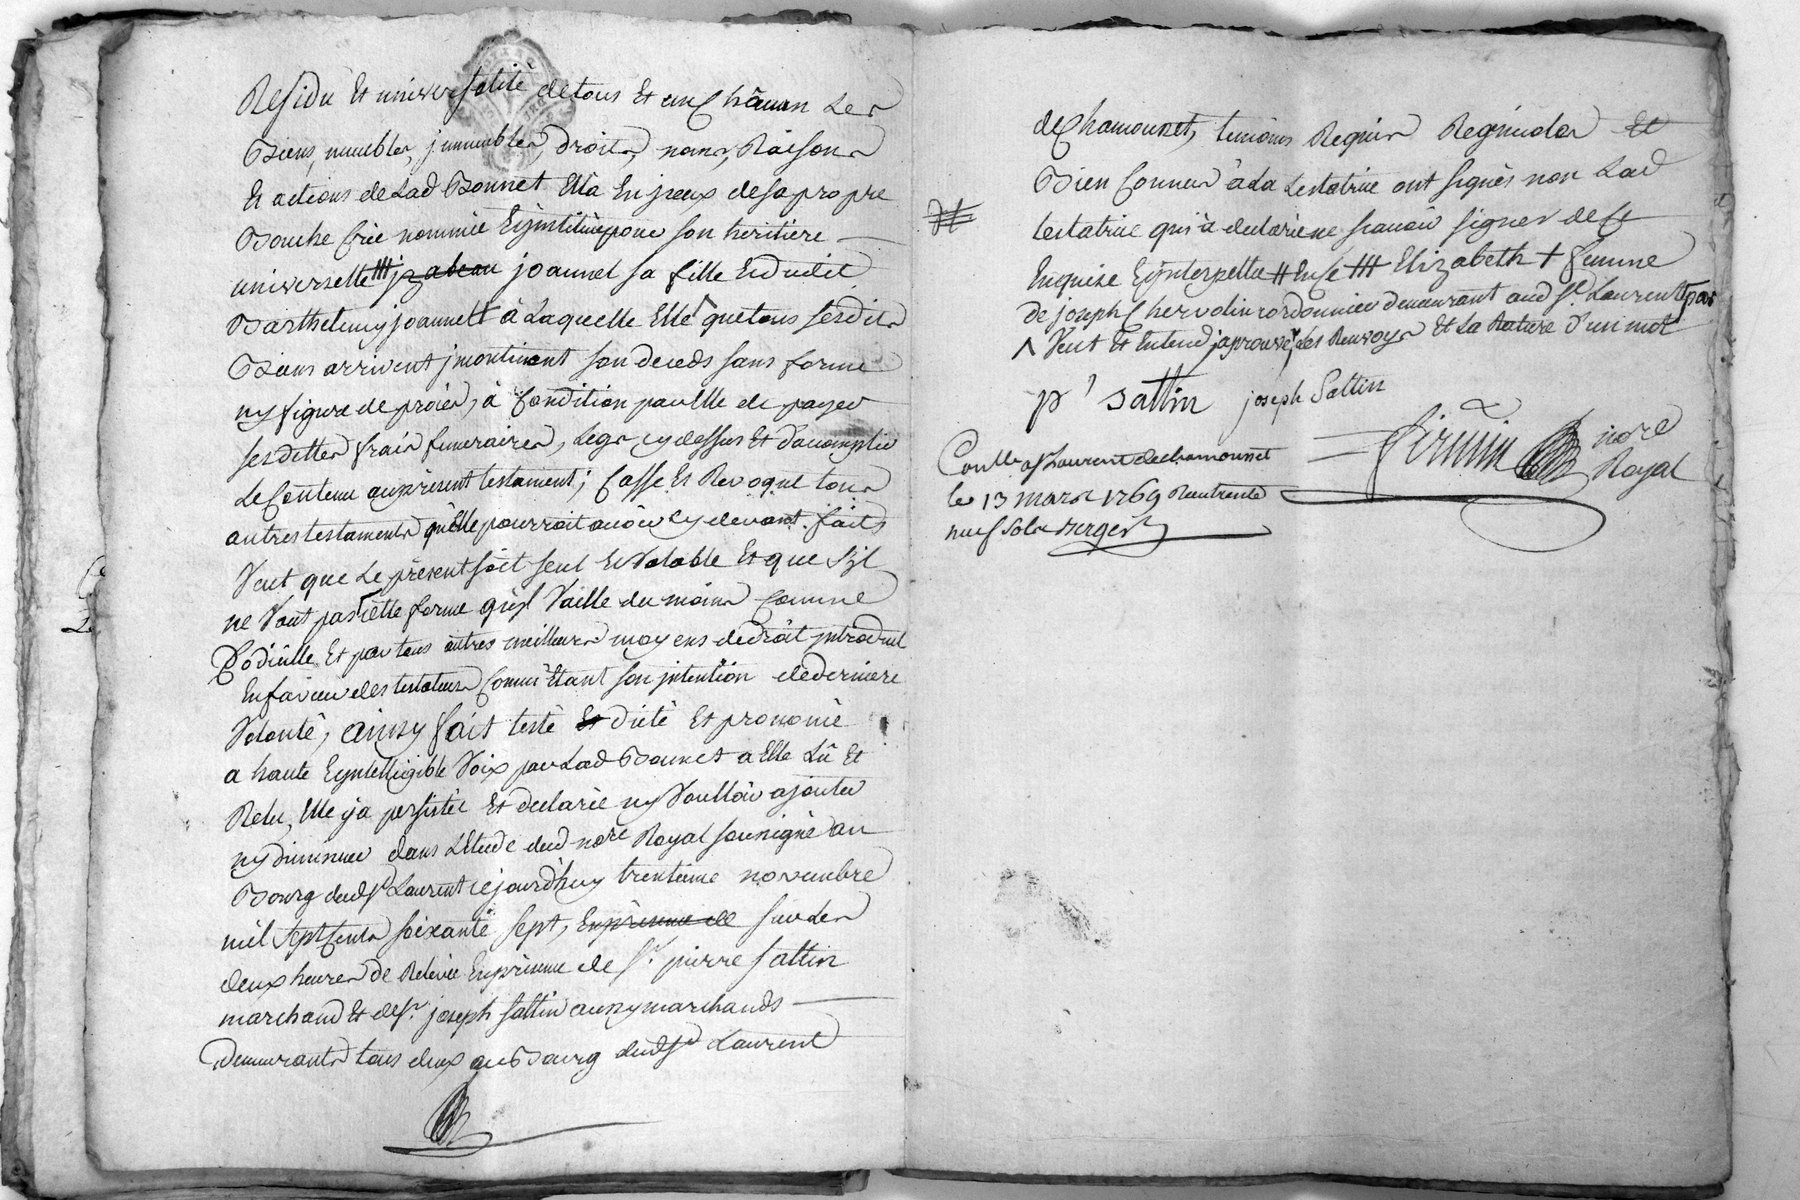 Residu Et universalité detous Et un Chacun Les
Biens, meubles, jmmeubles, droits, noms, Raisons
Et actions de Lad Bonnet Ella En jceux desa propre
Bouche Crée nommée Ejnstituée pour son heritiere
universelle ||| jzabeau joannet sa fille Et dudit
Barthelemy joannett à Laquelle Elle ^ que tous sesdits
Biens arrivent jmontinent son deceds sans forme
ny figure de procès, à Condition par Elle de payer
ses dettes frais funeraires, Legs, cy dessus Et d'acomplir
Le Contenu au present testament; Casse Et Revoque tous
autres testaments qu'Elle pourroit avoir cy devant faits
Veut que Le present soit seul Et Valable Et que S'jl
ne Vaut pas Cette forme qu'jl Vaille du moins Comme
Codicille Et par tous autres meilleurs moyens de droit jntroduit
En faveur des testateurs Comme Etant son jntention de derniere
Volonté, ainsy fait testé Et dicté Et prononcé
a haute Ejntelligible Voix par Lad Bonnet a Elle Lû Et
Relu, Elle y a persistée Et declarée ny Voulloir ajouter
ny diminuer dans L'Etude dud nore Royal soussigné au
Bourg dud St Laurent cejourd'huy trentieme novembre
mil sept Cents soixante sept, En presence de sur les
deux heures de Relevée En presence de Sr. pierre Sattin
marchand Et de Sr. joseph Sattin aussy marchands
Demeurants tous deux au Bourg dud St Laurent
de Chamousset, temoins Requis Regnicoles Et
Bien Connus à La testatrice ont signés non Lad
testatrice qui à declarée ne scavoir signer de Ce
Enquise Ejnterpellée # En Ce ||| Elizabeth + femme
de joseph Chervolin cordonnier demeurant aud St. Laurent par
^ Veut Et Entend japrouvé Les Renvoys Et La Rature d'un mot
p' Sattin joseph Sattin
Firmin nore
Royal
Conlle a St Laurent de chamousset
le 13 mars 1769 Reçu trente
neuf Sols Berger